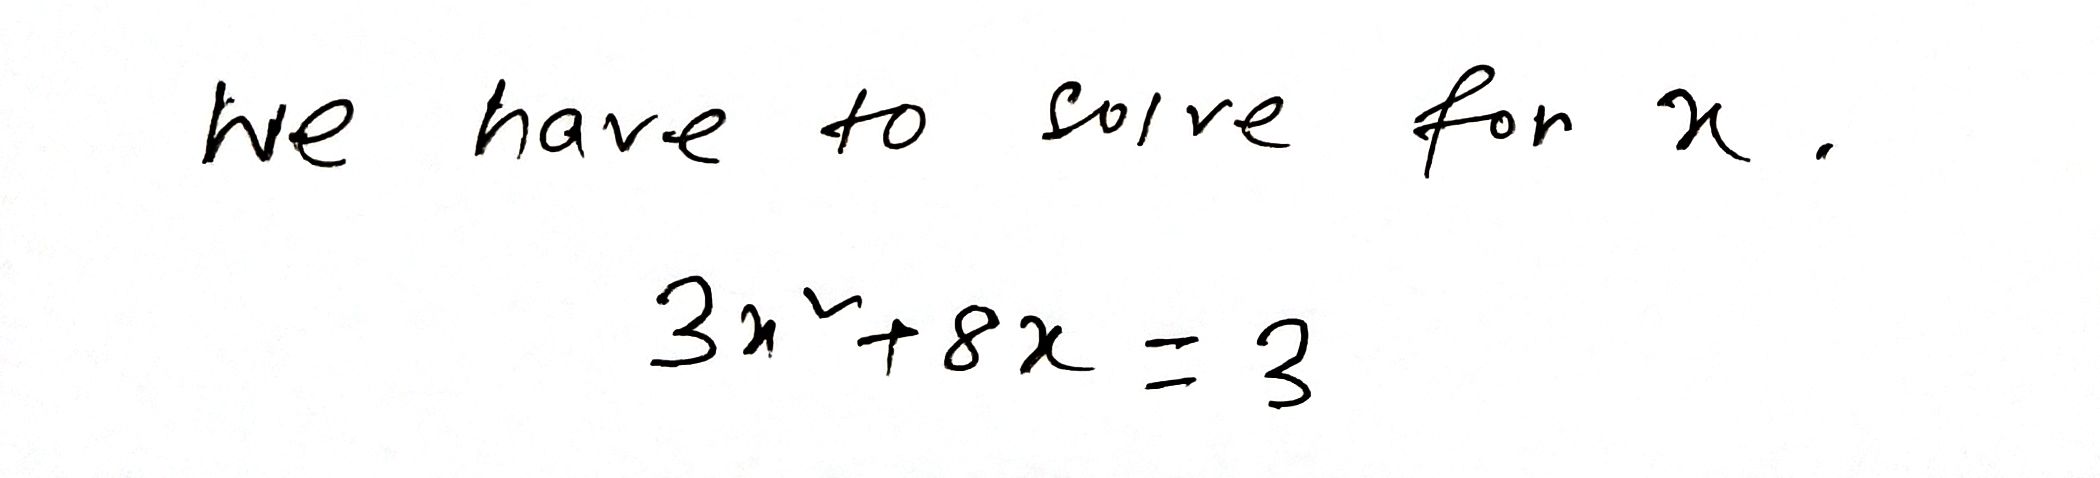 We have to solve for x.
3x² + 8x = 3